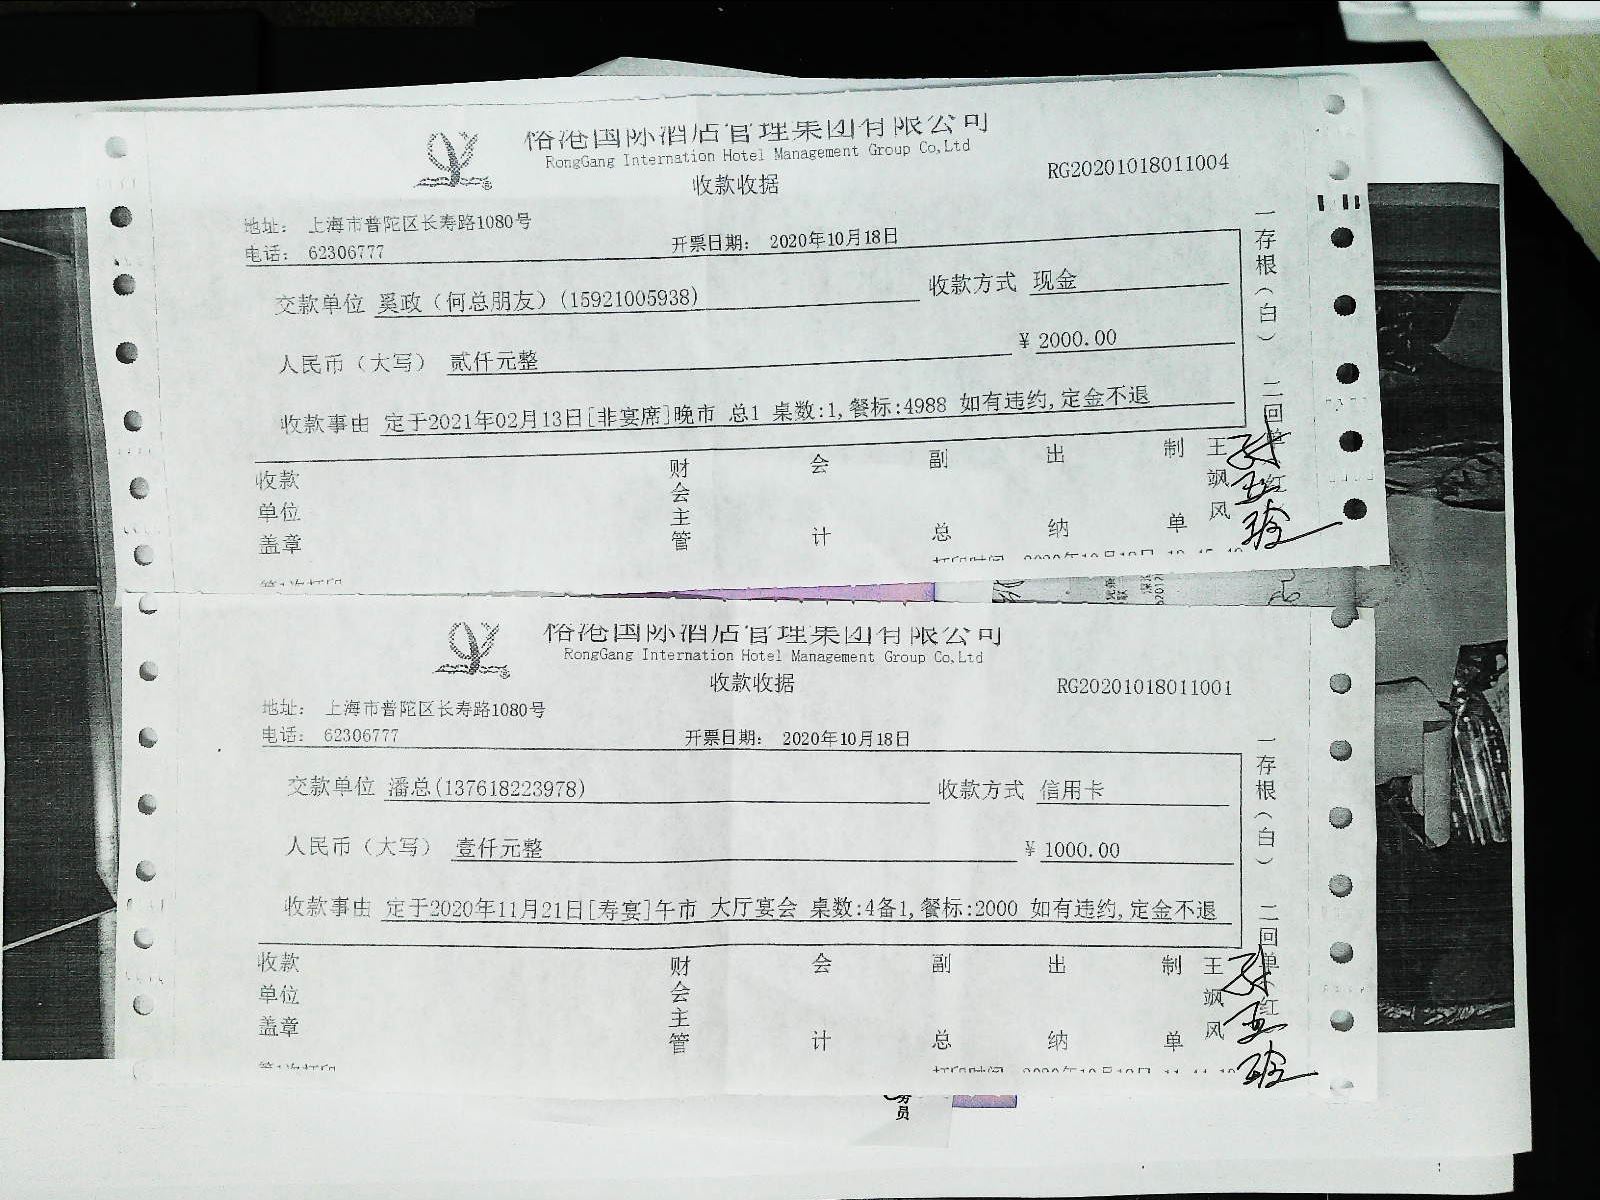 裕港国际酒店管理集团有限公司
RongGang Internation Hotel Management Group Co,Ltd
收款收据
RG20201018011004
地址： 上海市普陀区长寿路1080号
电话： 62306777
开票日期： 2020年10月18日
交款单位 奚政（何总朋友）(15921005938)
收款方式 现金
人民币（大写） 贰仟元整
¥ 2000.00
收款事由 定于2021年02月13日[非宴席]晚市 总1 桌数:1,餐标:4988 如有违约,定金不退
收款单位盖章
财会主管
会计
副总
出纳
制单
王飒风
一存根（白） 二回单（红
第1次打印
打印时间
裕港国际酒店管理集团有限公司
RongGang Internation Hotel Management Group Co,Ltd
收款收据
RG20201018011001
地址： 上海市普陀区长寿路1080号
电话： 62306777
开票日期： 2020年10月18日
交款单位 潘总(137618223978)
收款方式 信用卡
人民币（大写） 壹仟元整
¥ 1000.00
收款事由 定于2020年11月21日[寿宴]午市 大厅宴会 桌数:4备1,餐标:2000 如有违约,定金不退
收款单位盖章
财会主管
会计
副总
出纳
制单
王飒风
一存根（白） 二回单（红
第1次打印
打印时间